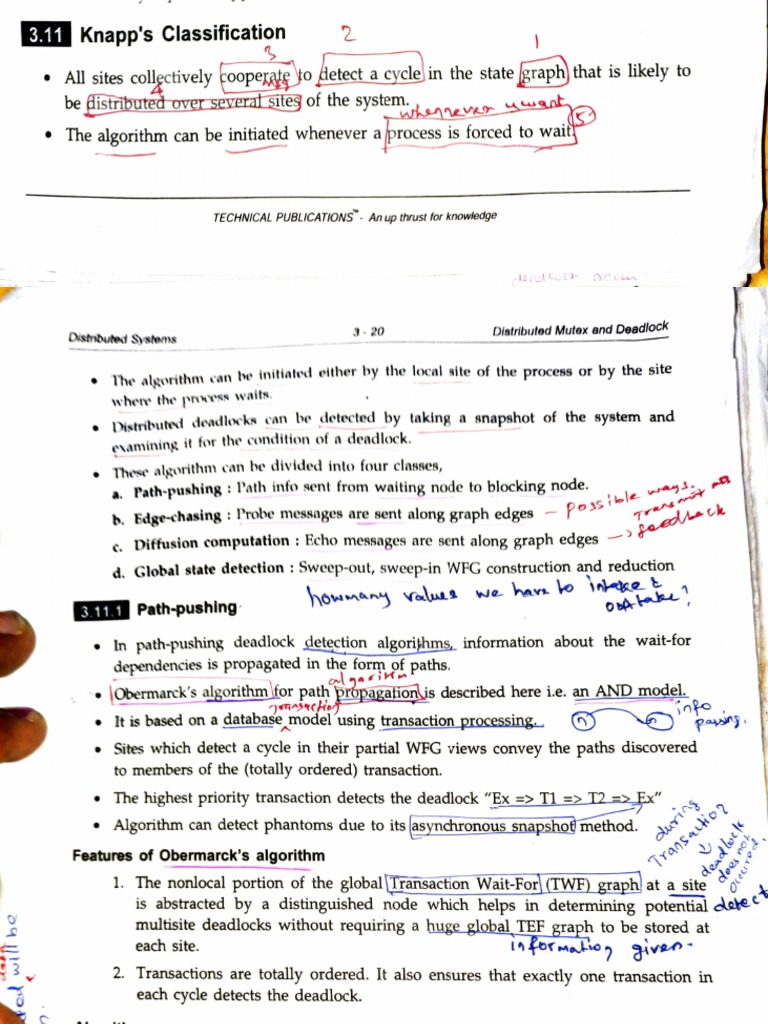 3.11 Knapp's Classification
3 2 1
• All sites collectively cooperate to detect a cycle in the state graph that is likely to
4 msg
be distributed over several sites of the system.
whenever u want 5
• The algorithm can be initiated whenever a process is forced to wait
TECHNICAL PUBLICATIONS™ - An up thrust for knowledge
deadlock
Distributed Systems 3 - 20 Distributed Mutex and Deadlock
• The algorithm can be initiated either by the local site of the process or by the site
where the process waits.
• Distributed deadlocks can be detected by taking a snapshot of the system and
examining it for the condition of a deadlock.
• These algorithm can be divided into four classes,
a. Path-pushing : Path info sent from waiting node to blocking node.
b. Edge-chasing : Probe messages are sent along graph edges – possible ways.
c. Diffusion computation : Echo messages are sent along graph edges –> feedback
d. Global state detection : Sweep-out, sweep-in WFG construction and reduction
howmany values we have to intake &
outtake?
3.11.1 Path-pushing
• In path-pushing deadlock detection algorithms, information about the wait-for
dependencies is propagated in the form of paths.
algorithm
• Obermarck's algorithm for path propagation is described here i.e. an AND model.
transaction
• It is based on a database model using transaction processing.
info
passing.
• Sites which detect a cycle in their partial WFG views convey the paths discovered
to members of the (totally ordered) transaction.
• The highest priority transaction detects the deadlock "Ex => T1 => T2 => Ex"
• Algorithm can detect phantoms due to its asynchronous snapshot method.
during
Transaction
deadlock
does not
occured.
Features of Obermarck's algorithm
1. The nonlocal portion of the global Transaction Wait-For (TWF) graph at a site
is abstracted by a distinguished node which helps in determining potential detect
multisite deadlocks without requiring a huge global TEF graph to be stored at
each site.
information given.
2. Transactions are totally ordered. It also ensures that exactly one transaction in
each cycle detects the deadlock.
will be